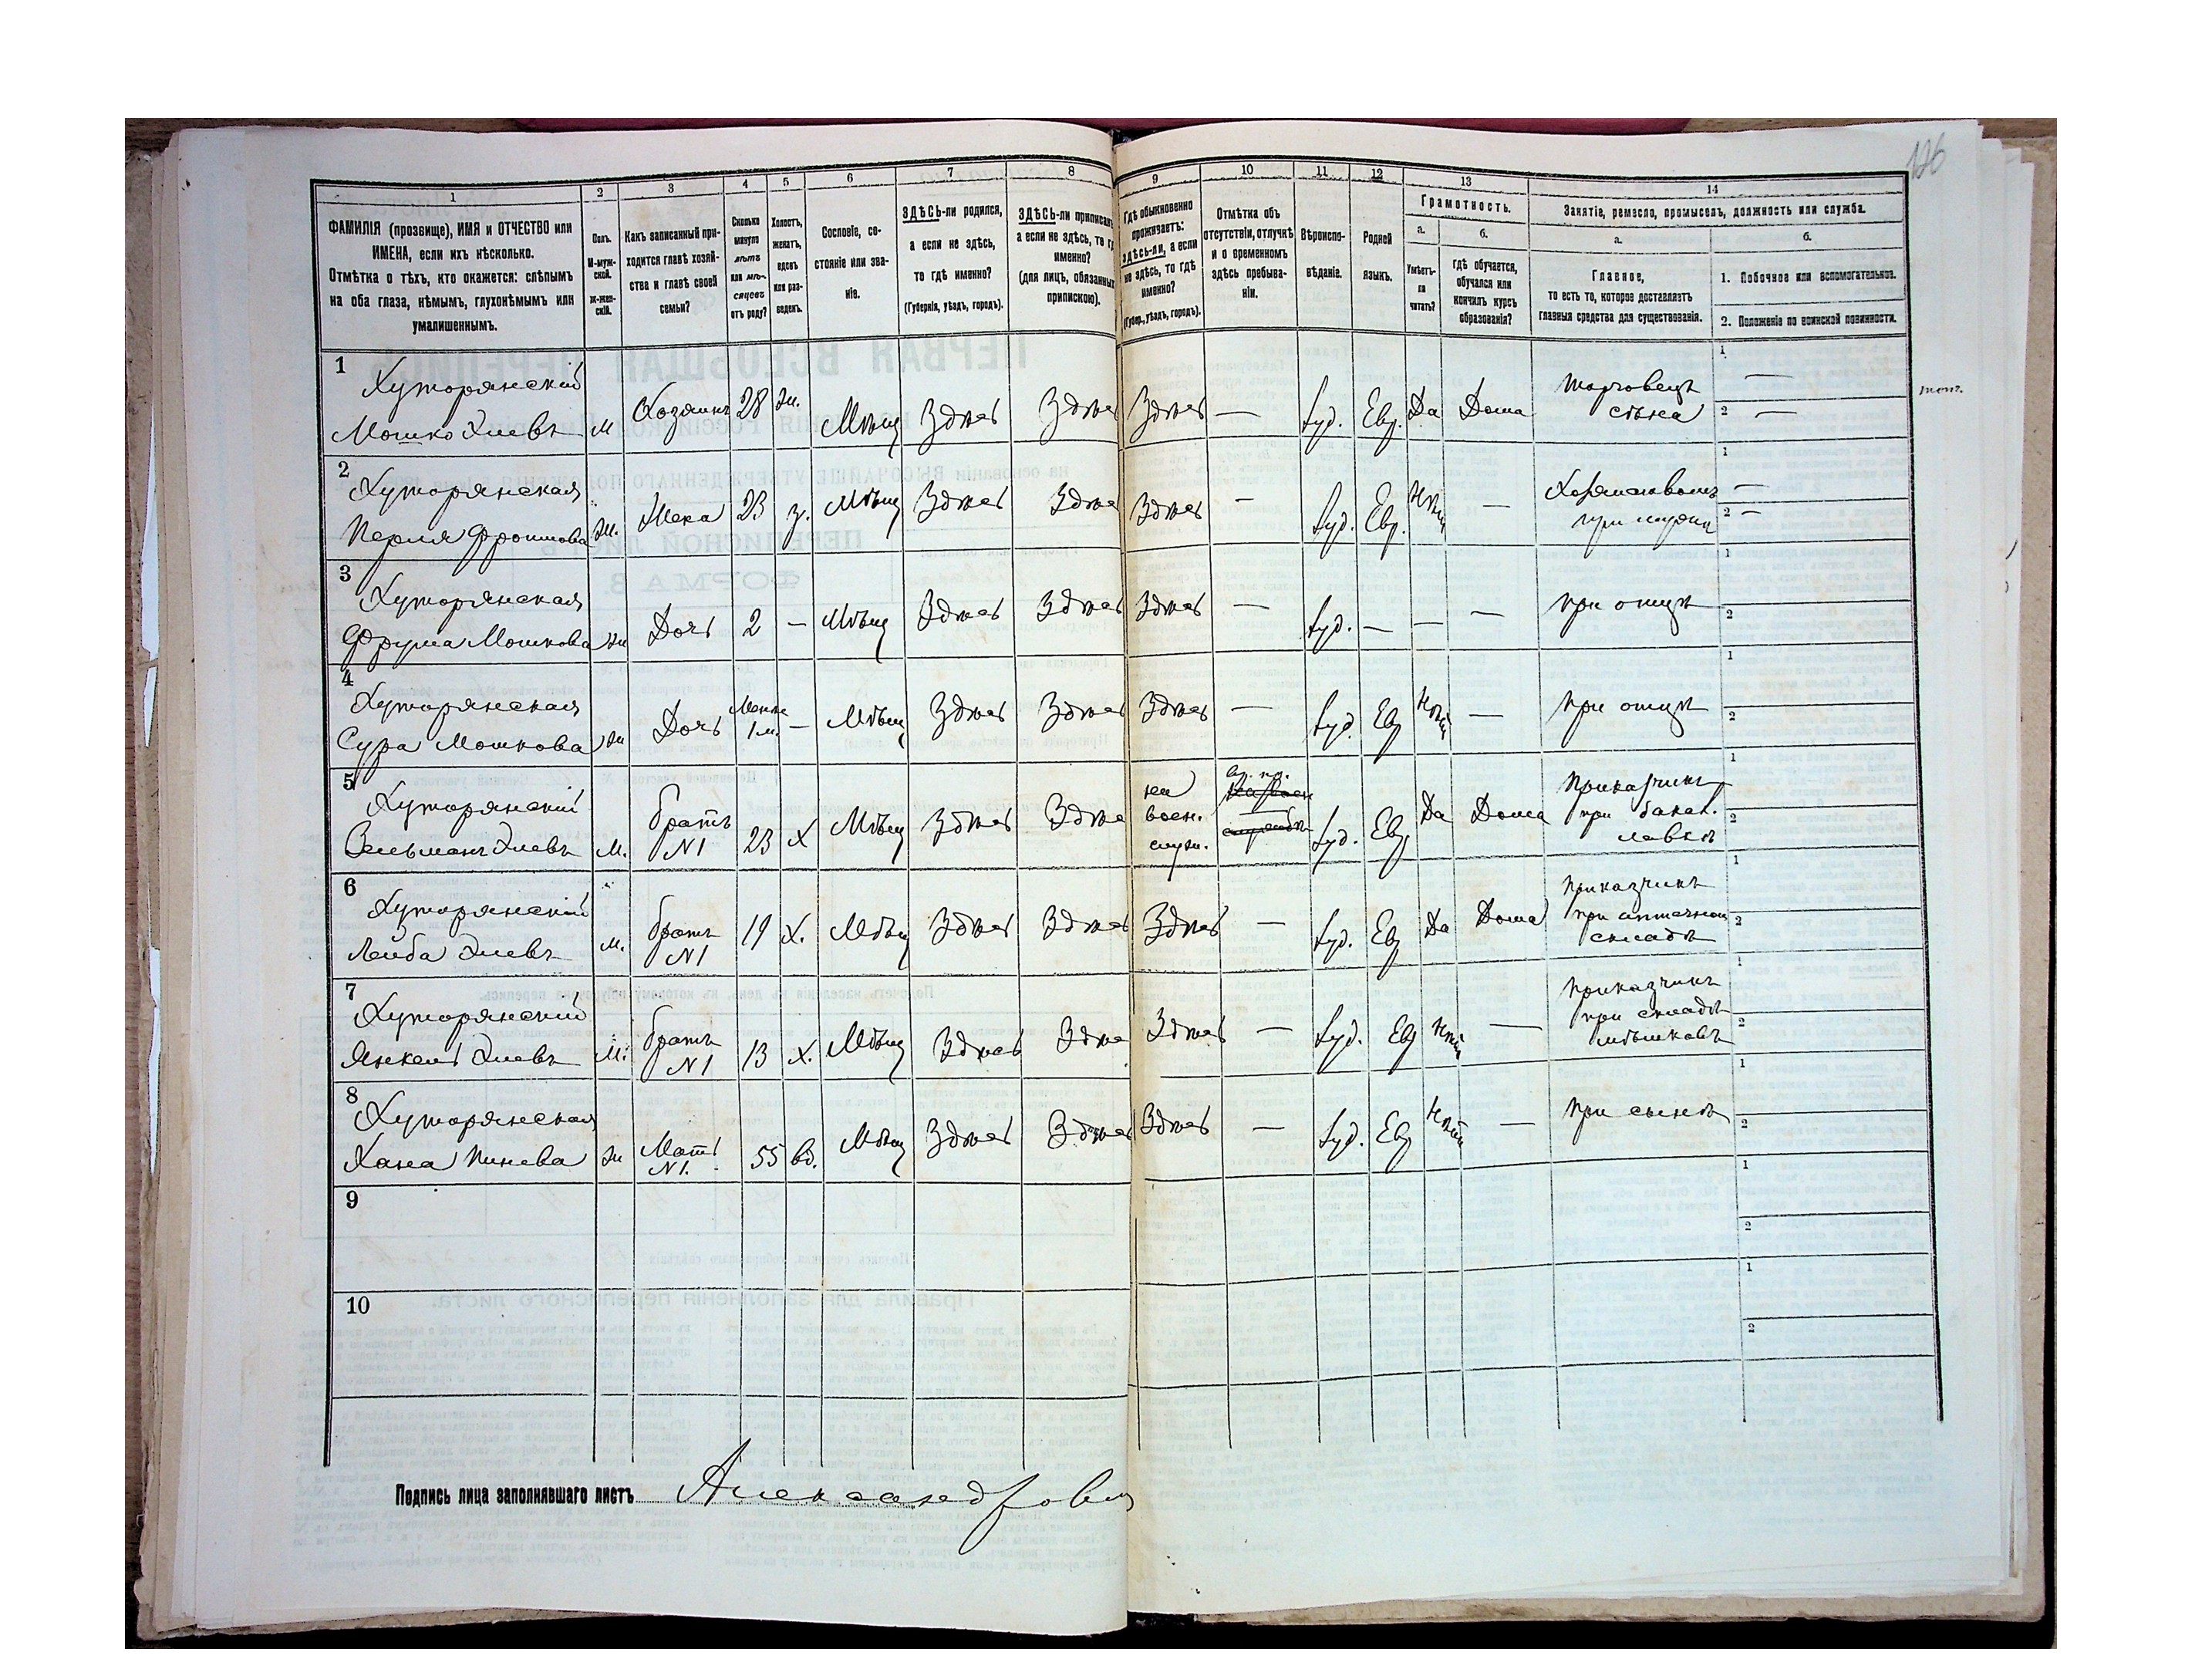 126
1 2 3 4 5 6 7 8 9 10 11 12 13 14
ФАМИЛІЯ (прозвище), ИМЯ и ОТЧЕСТВО или
ИМЕНА, если ихъ нѣсколько.
Отмѣтка о тѣхъ, кто окажется: слѣпымъ
на оба глаза, нѣмымъ, глухонѣмымъ или
умалишеннымъ.
Полъ.
М-муж-
ской.
ж-жен-
скій.
Какъ записанный при-
ходится главѣ хозяй-
ства и главѣ своей
семьи?
Сколько
минуло
лѣтъ
или мѣ-
сяцевъ
отъ роду?
Холостъ,
женатъ,
вдовъ
или раз-
веденъ.
Сословіе, со-
стояніе или зва-
ніе.
ЗДѢСЬ-ли родился,
а если не здѣсь,
то гдѣ именно?
(Губернія, уѣздъ, городъ).
ЗДѢСЬ-ли приписанъ,
а если не здѣсь, то гдѣ
именно?
(для лицъ, обязанныхъ
припискою).
Гдѣ обыкновенно
проживаетъ:
здѣсь-ли, а если
не здѣсь, то гдѣ
именно?
(Губер., уѣздъ, городъ).
Отмѣтка объ
отсутствіи, отлучкѣ
и о временномъ
здѣсь пребыва-
ніи.
Вѣроиспо-
вѣданіе.
Родной
языкъ.
Грамотность.
а.
Умѣетъ-
ли
читать?
б.
гдѣ обучается,
обучался или
кончилъ курсъ
образованія?
Занятіе, ремесло, промыселъ, должность или служба.
а.
Главное,
то есть то, которое доставляетъ
главныя средства для существованія.
б.
1. Побочное или вспомогательное.
2. Положеніе по воинской повинности.
1 Хуторянскій
Мошко Элевъ М Хозяинъ 28 ж. Мѣщ Здѣсь Здѣсь Здѣсь — Іуд. Евр. Да Дома торговецъ
сѣна 1 — 2 —
2 Хуторянская
Перля Фроимова Ж. Жена 23 з. Мѣщ Здѣсь Здѣсь Здѣсь — Іуд. Евр. Нѣтъ —
при мужѣ 1 — 2 —
3 Хуторянская
Фрума Мошкова Ж Дочь 2 — Мѣщ Здѣсь Здѣсь Здѣсь — Іуд. — — — при отцѣ 1 2
4 Хуторянская
Сура Мошкова Ж Дочь Менѣе
1 м. — Мѣщ Здѣсь Здѣсь Здѣсь — Іуд. Евр Нѣтъ — при отцѣ 1 2
5 Хуторянскій
Зельманъ Элевъ М. братъ
N1 23 Х Мѣщ Здѣсь Здѣсь на
воен.
служ. Іуд. Евр Да Дома Приказчикъ
при бакал.
лавкѣ 1 2
6 Хуторянскій
Лейба Элевъ М. братъ
N1 19 Х. Мѣщ Здѣсь Здѣсь Здѣсь — Іуд. Евр Да Дома приказчикъ
при аптечном
складѣ 1 2
7 Хуторянскій
Янкель Элевъ М. братъ
N1 13 Х. Мѣщ Здѣсь Здѣсь Здѣсь — Іуд. Евр Нѣтъ — приказчикъ
при складѣ
мѣшковъ 1 2
8 Хуторянская
Хана Пинева Ж Мать
N1. 55 вд. Мѣщ Здѣсь Здѣсь Здѣсь — Іуд. Евр Нѣтъ — при сынѣ 1 2
9 1 2
10 1 2
Подпись лица заполнявшаго листъ Александрович